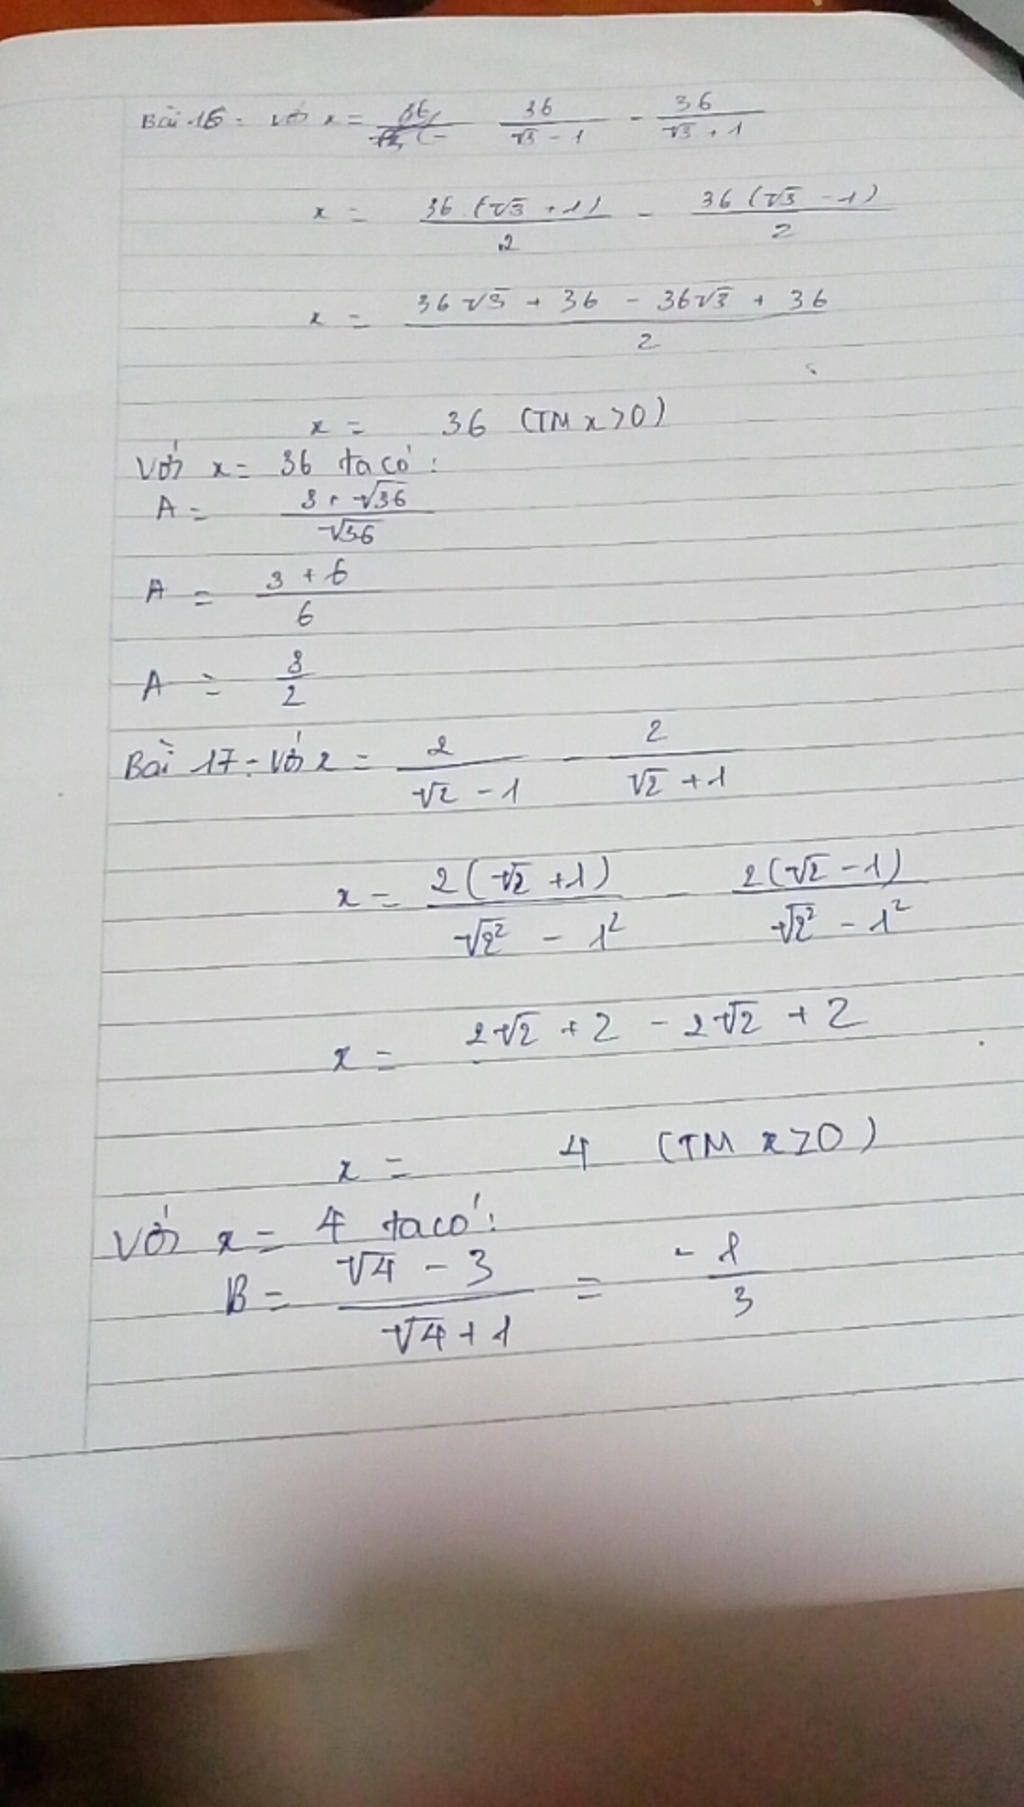 Bài 16: với x = 36/(√3 - 1) - 36/(√3 + 1)
x = 36(√3 + 1)/2 - 36(√3 - 1)/2
x = (36√3 + 36 - 36√3 + 36)/2
x = 36 (TM x>0)
Với x = 36 ta có:
A = (3 + √36)/√36
A = (3 + 6)/6
A = 3/2
Bài 17: Với x = 2/(√2 - 1) - 2/(√2 + 1)
x = 2(√2 + 1)/(√2² - 1²) - 2(√2 - 1)/(√2² - 1²)
x = 2√2 + 2 - 2√2 + 2
x = 4 (TM x≥0)
Với x = 4 ta có:
B = (√4 - 3)/(√4 + 1) = -1/3